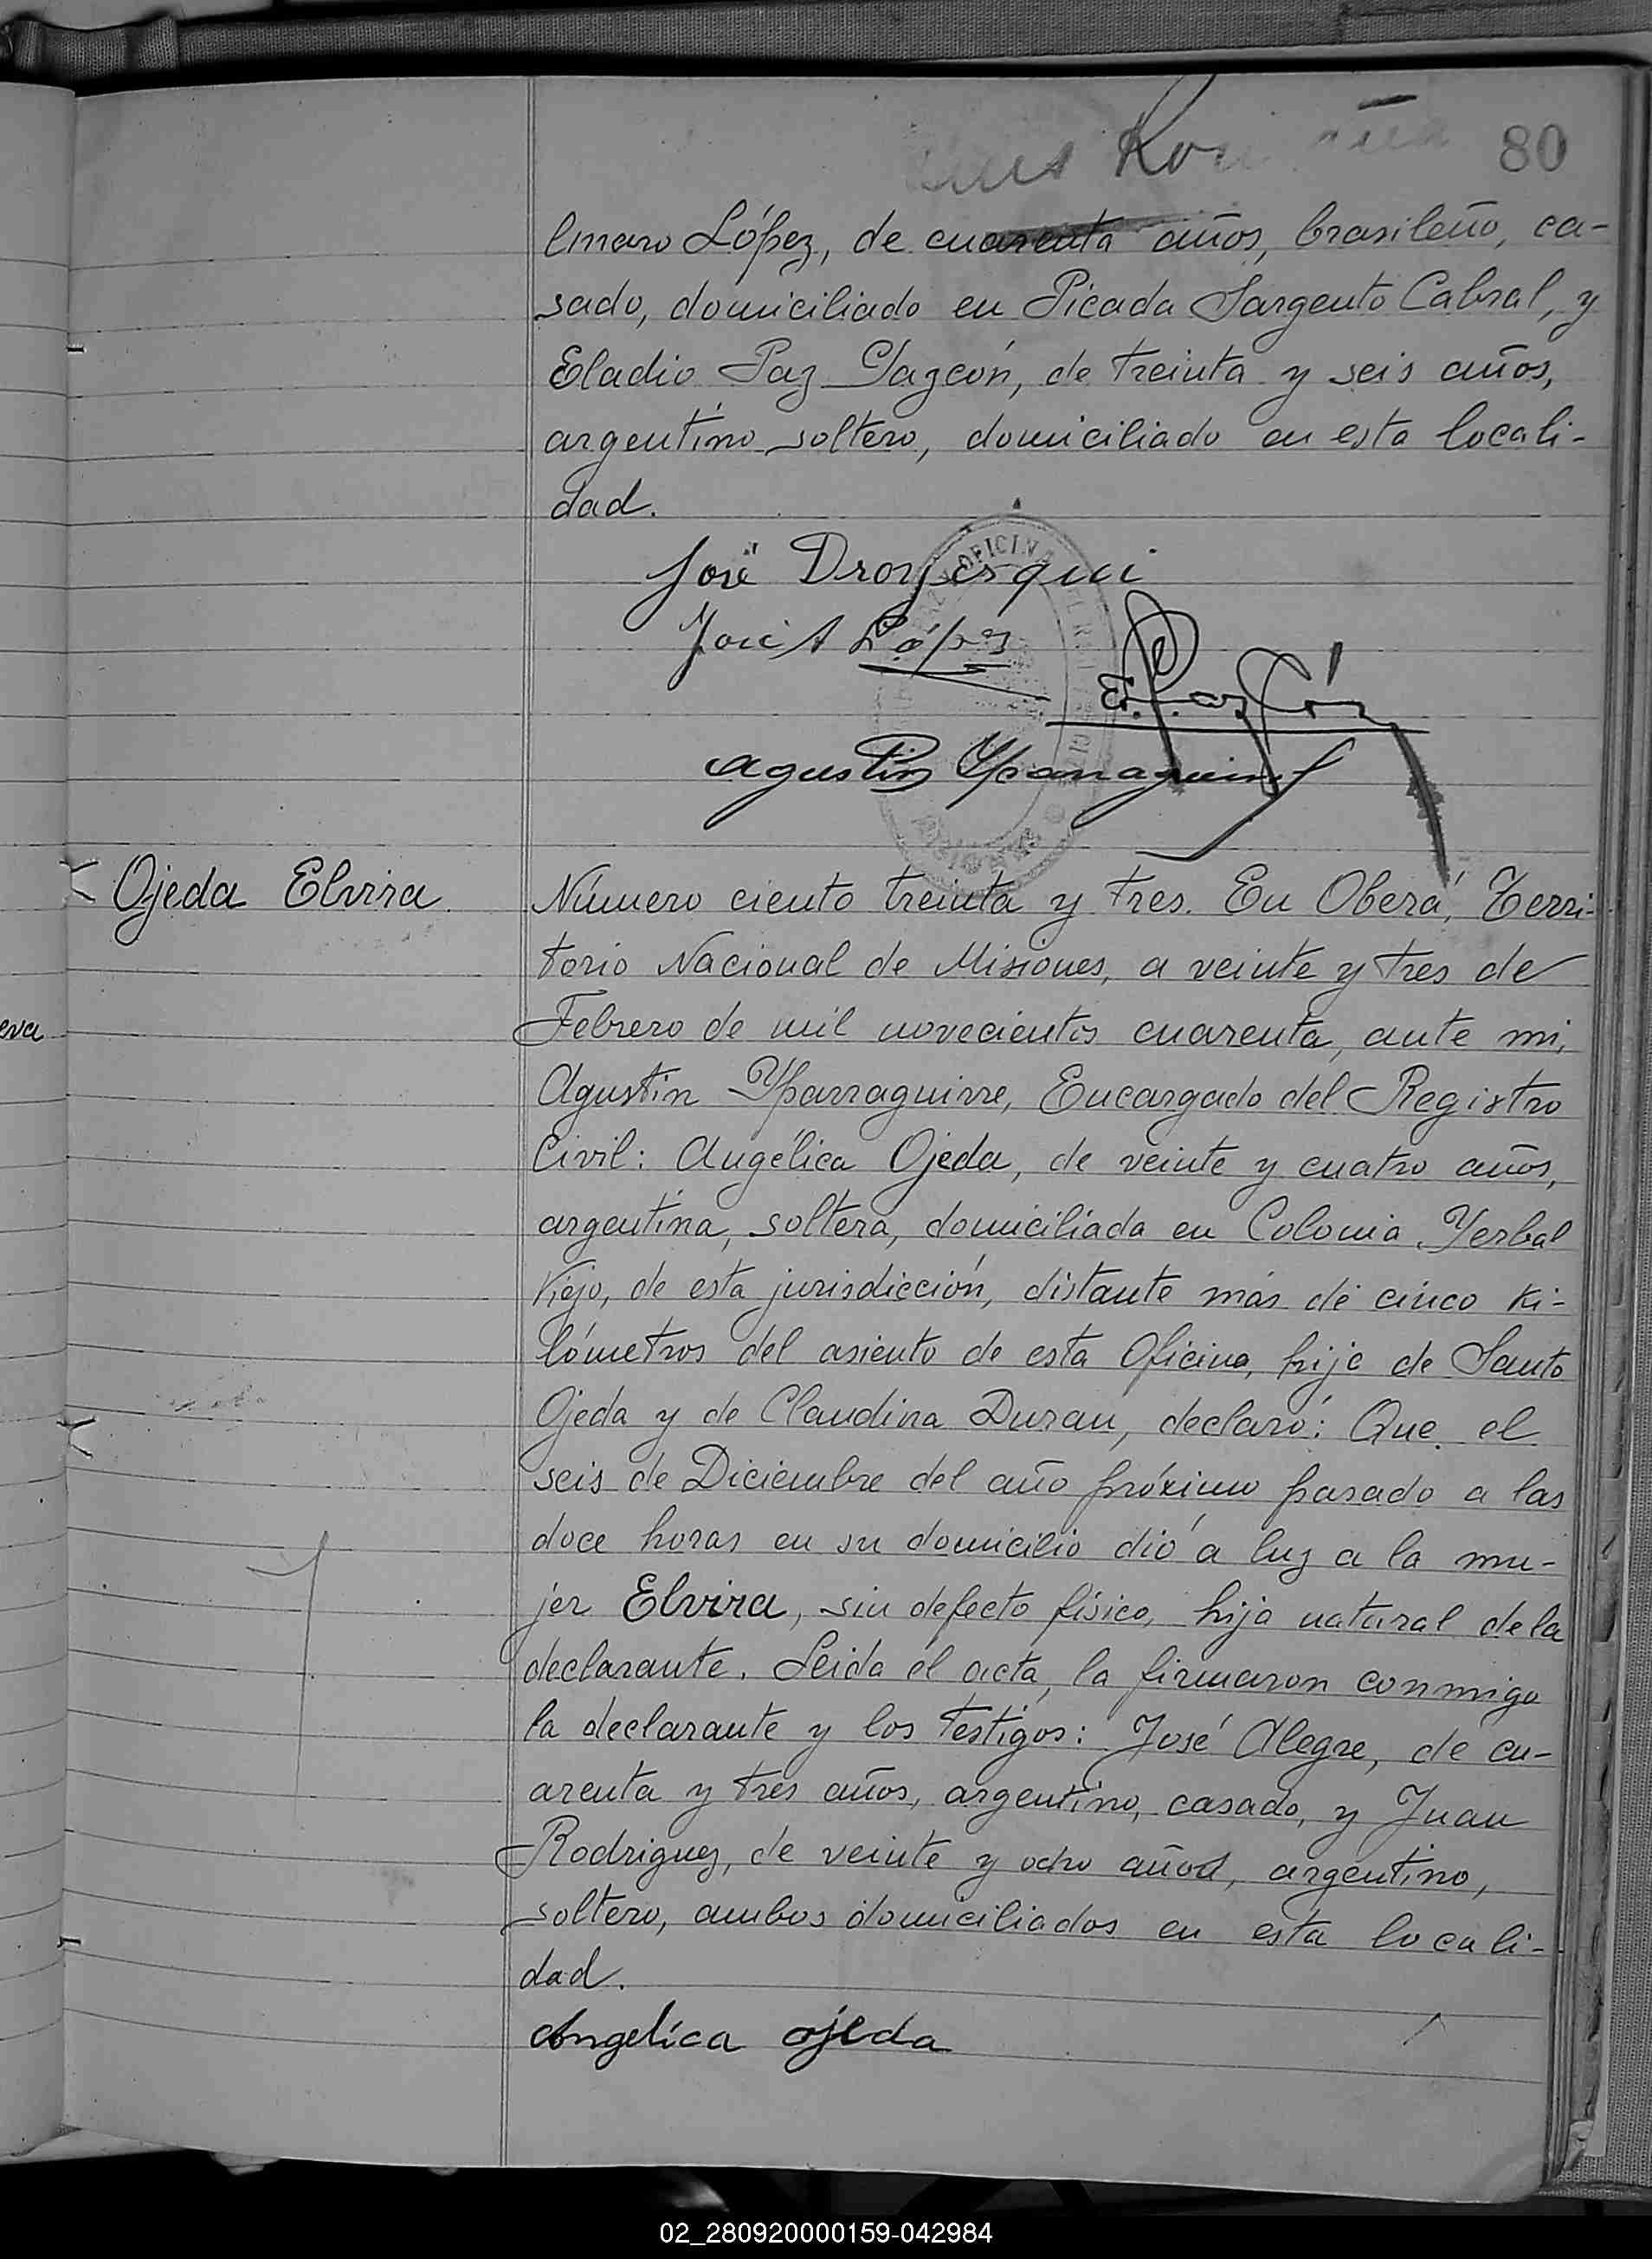 80
López, de cuarenta años, brasileño, ca-
sado, domiciliado en Picada Sargento Cabral, y
Eladio Paz Gazcón, de treinta y seis años,
argentino soltero, domiciliado en esta locali-
dad.
José
José A López
Agustin Yparraguirre
Ojeda Elvira
Número ciento treinta y tres. En Oberá, Terri-
torio Nacional de Misiones, a veinte y tres de
Febrero de mil novecientos cuarenta, ante mi,
eva
Agustin Yparraguirre, Encargado del Registro
Civil: Angélica Ojeda, de veinte y cuatro años,
argentina, soltera, domiciliada en Colonia Yerbal
Viejo, de esta jurisdicción, distante más de cinco ki-
lómetros del asiento de esta Oficina, hija de Santo
Ojeda y de Claudina Duran, declaró: Que el
seis de Diciembre del año próximo pasado a las
doce horas en su domicilio dió a luz a la mu-
jer Elvira, sin defecto físico, hija natural de la
declarante. Leida el acta, la firmaron conmigo
la declarante y los testigos: José Alegre, de cu-
arenta y tres años, argentino, casado, y Juan
Rodriguez, de veinte y ocho años, argentino,
soltero, ambos domiciliados en esta locali-
dad.
Angelica ojeda
02_280920000159-042984